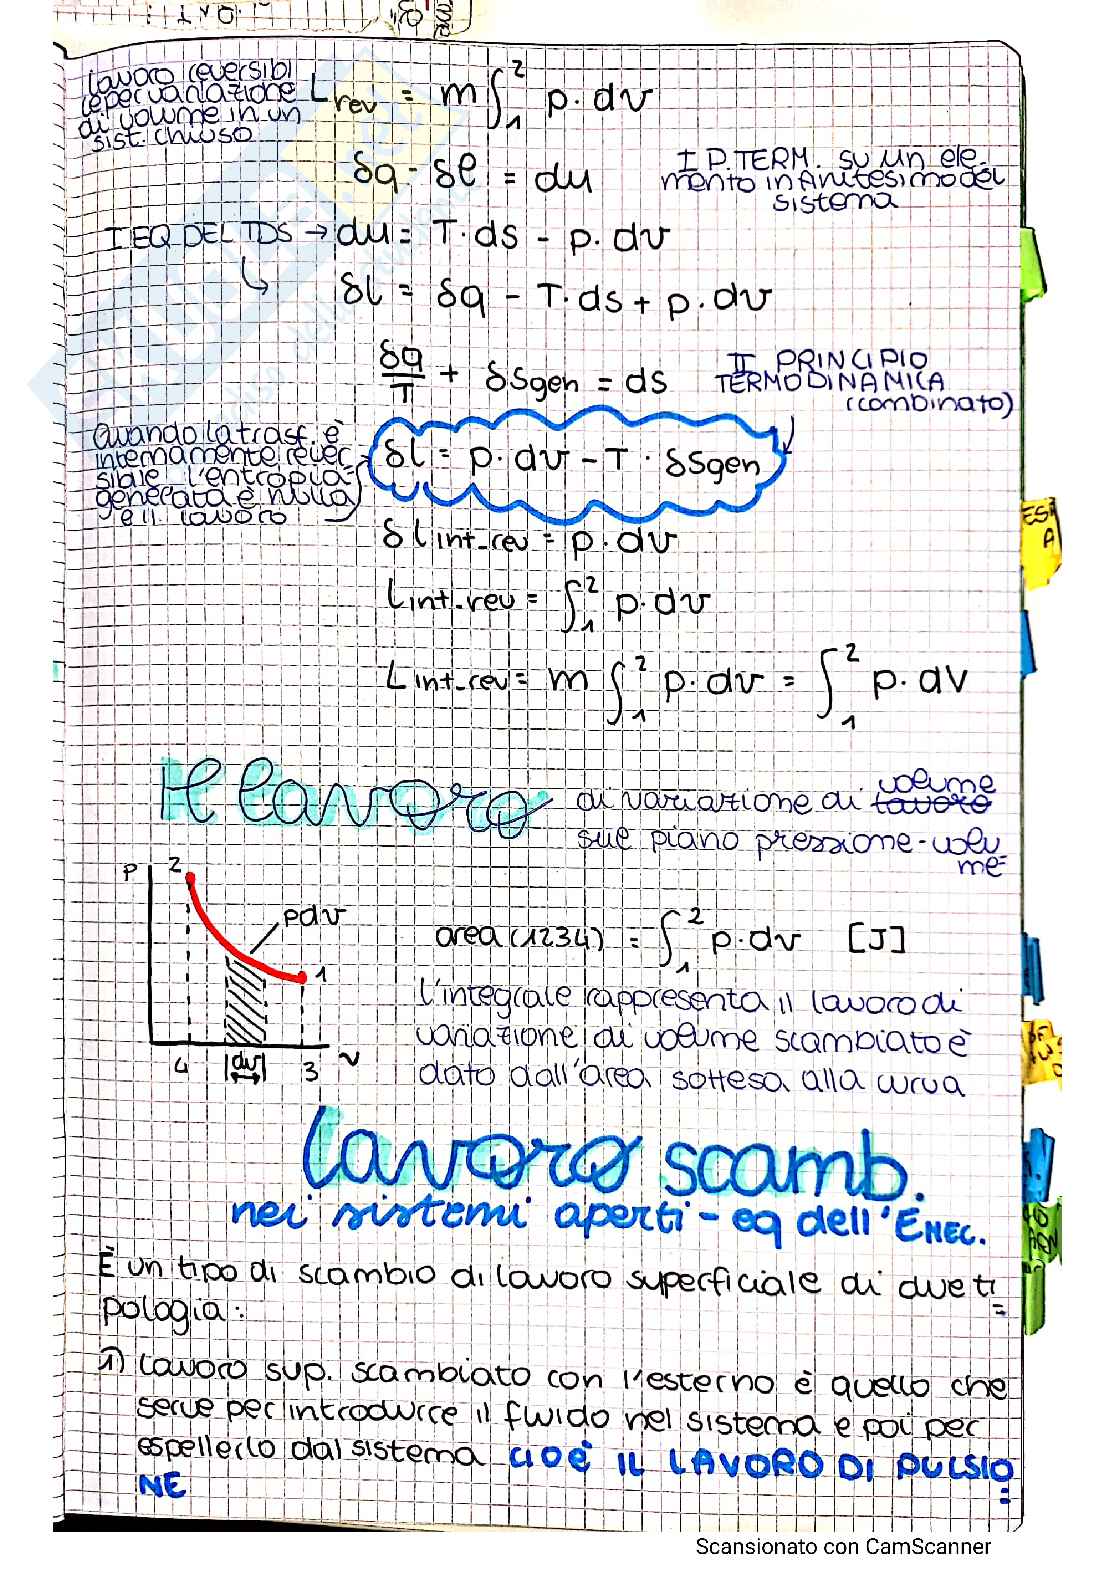 lavoro reversibi
le per variazione
di volume in un
sist. chiuso
Lrev = m∫₁² p·dv
δq - δl = du
I P.TERM. su un ele-
mento infinitesimo del
sistema
I EQ DEL TDS → du = T·ds - p·dv
δl = δq - T·ds + p·dv
δq/T + δSgen = ds
II PRINCIPIO
TERMODINAMICA
(combinato)
Quando la trasf. è
internamente rever
sibile l'entropia
generata è nulla
e il lavoro
δl = p·dv - T·δSgen
δl int-rev = p·dv
Lint-rev = ∫₁² p·dv
Lint-rev = m ∫₁² p·dv = ∫₁² p·dV
Il lavoro di variazione di lavoro volume
sul piano pressione-volu
me
p 2
pdv
1
4 dv 3 v
area (1234) = ∫₁² p·dv [J]
l'integrale rappresenta il lavoro di
variazione di volume scambiato è
dato dall'area sottesa alla curva
lavoro scamb.
nei sistemi aperti - eq dell'ENEC.
È un tipo di scambio di lavoro superficiale di due ti
pologia:
1) lavoro sup. scambiato con l'esterno è quello che
serve per introdurre il fluido nel sistema e poi per
espellerlo dal sistema CIOÈ IL LAVORO DI PULSIO
NE
ESA
A
Scansionato con CamScanner